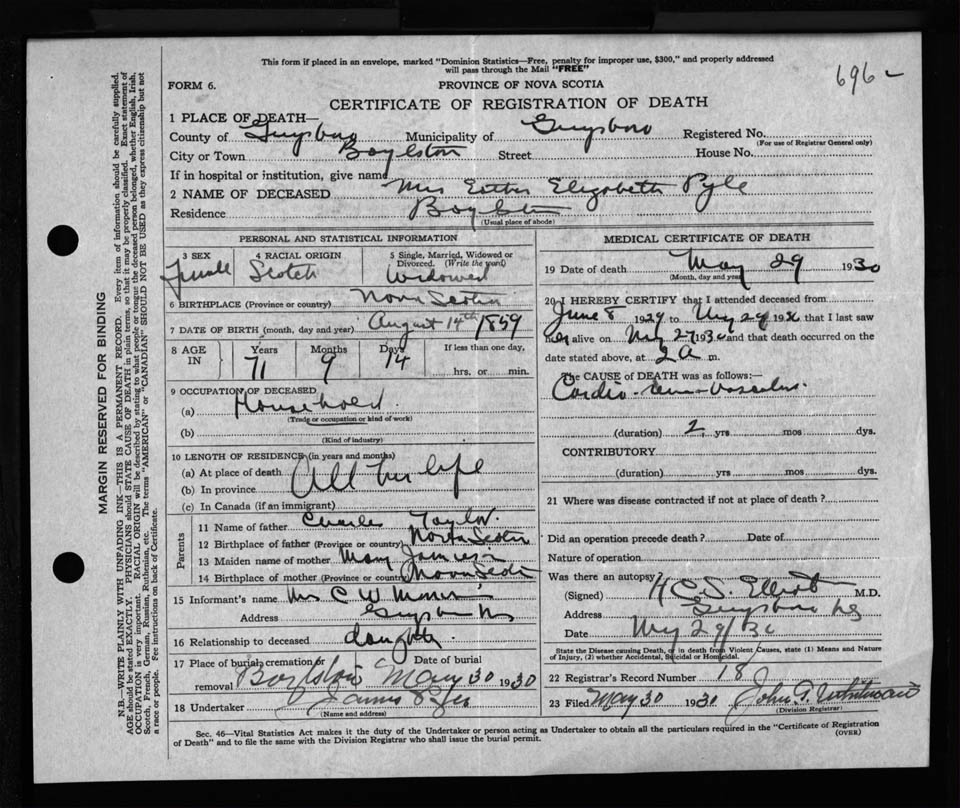 This form if placed in an envelope, marked "Dominion Statistics—Free, penalty for improper use, $300," and properly addressed
will pass through the Mail "FREE"
696
FORM 6.
PROVINCE OF NOVA SCOTIA
CERTIFICATE OF REGISTRATION OF DEATH
1 PLACE OF DEATH—
County of Guysboro Municipality of Guysboro Registered No.
(For use of Registrar General only)
City or Town Boylston Street House No.
If in hospital or institution, give name
2 NAME OF DECEASED Mrs Esther Elizabeth Pyle
Residence Boylston
(Usual place of abode)
PERSONAL AND STATISTICAL INFORMATION
3 SEX Female
4 RACIAL ORIGIN Scotch
5 Single, Married, Widowed or Divorced. (Write the word) Widowed
6 BIRTHPLACE (Province or country) Nova Scotia
7 DATE OF BIRTH (month, day and year) August 14th 1859
8 AGE IN Years 71 Months 9 Days 14 If less than one day, hrs. or min.
9 OCCUPATION OF DECEASED
(a) Household
(Trade or occupation or kind of work)
(b)
(Kind of industry)
10 LENGTH OF RESIDENCE (in years and months)
(a) At place of death All her life
(b) In province
(c) In Canada (if an immigrant)
Parents
11 Name of father Charles Taylor
12 Birthplace of father (Province or country) Nova Scotia
13 Maiden name of mother Mary Jamieson
14 Birthplace of mother (Province or country) Nova Scotia
15 Informant's name Mrs C W
Address Guysboro NS
16 Relationship to deceased daughter
17 Place of burial, cremation or removal Boylston Date of burial May 30 1930
18 Undertaker James
(Name and address)
MEDICAL CERTIFICATE OF DEATH
19 Date of death May 29 1930
(Month, day and year)
20 I HEREBY CERTIFY that I attended deceased from
June 8 1929 to May 29 1930 that I last saw
her alive on May 27 1930 and that death occurred on the
date stated above, at 2 a m.
The CAUSE OF DEATH was as follows:—
Cardio
(duration) 2 yrs mos dys.
CONTRIBUTORY
(duration) yrs mos dys.
21 Where was disease contracted if not at place of death?
Did an operation precede death? Date of
Nature of operation
Was there an autopsy?
(Signed) H C S Elliot M.D.
Address Guysboro NS
Date May 29/30
State the Disease causing Death, or in death from Violent Causes, state (1) Means and Nature
of Injury, (2) whether Accidental, Suicidal or Homicidal.
22 Registrar's Record Number 18
23 Filed May 30 1930 John G.
(Division Registrar)
Sec. 46—Vital Statistics Act makes it the duty of the Undertaker or person acting as Undertaker to obtain all the particulars required in the "Certificate of Registration
of Death" and to file the same with the Division Registrar who shall issue the burial permit.
(OVER)
MARGIN RESERVED FOR BINDING
N.B.—WRITE PLAINLY WITH UNFADING INK—THIS IS A PERMANENT RECORD. Every item of information should be carefully supplied.
AGE should be stated EXACTLY. PHYSICIANS should STATE CAUSE OF DEATH in plain terms, so that it may be properly classified. Exact statement of
OCCUPATION is very important. RACIAL ORIGIN will be described by stating to what people or tongue the deceased person belonged, whether English, Irish,
Scotch, French, German, Russian, Ruthenian, etc. The terms "AMERICAN" or "CANADIAN" SHOULD NOT BE USED as they express citizenship but not
a race or people. Fee instructions on back of Certificate.